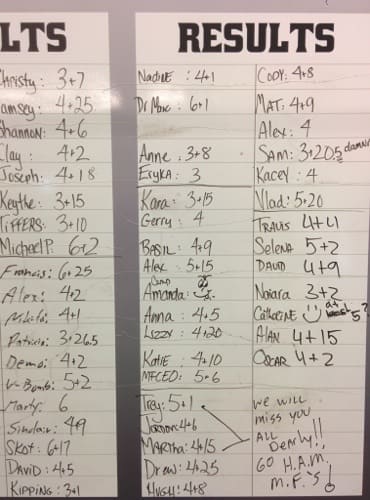 LTS
Christy: 3+7
amsey: 4+25
Shannon: 4+6
Clay: 4+2
Joseph: 4+18
Keythe: 3+15
TIFFERS: 3+10
Michael P. 6+2
Francis: 6+25
Alex: 4+2
4+1
Patricia: 3+26.5
Demo: 4+2
V-Bomb: 5+2
Marty: 6
Sinclair: 4+9
SKOT: 6+17
DAVID: 4+5
KIPPING: 3+1
RESULTS
NadinE: 4+1
Dr Moe: 6+1
Anne: 3+8
Eryka: 3
Kara: 3+15
Gerry: 4
BASIL: 4+9
Alex: 5+15
Camp
Amanda:
Anna: 4+5
Lizzy: 4+20
KatiE: 4+10
MFCEO: 5+6
Trey: 5+1
Jordon: 4+6
MARTHA: 4+15
Drew: 4+25
HUGH: 4+8
CODY: 4+8
MAT: 4+9
Alex: 4
SAM: 3+20.5 damnit
KACEY: 4
Vlad: 5+20
TRAVIS 4+4
Selena 5+2
DAVID 4+9
Naiara 3+2
Catherine at least 5?
ALAN 4+15
OSCAR 4+2
we will
miss you
ALL
Dearly!!
GO H.A.M.
M.F.'s!